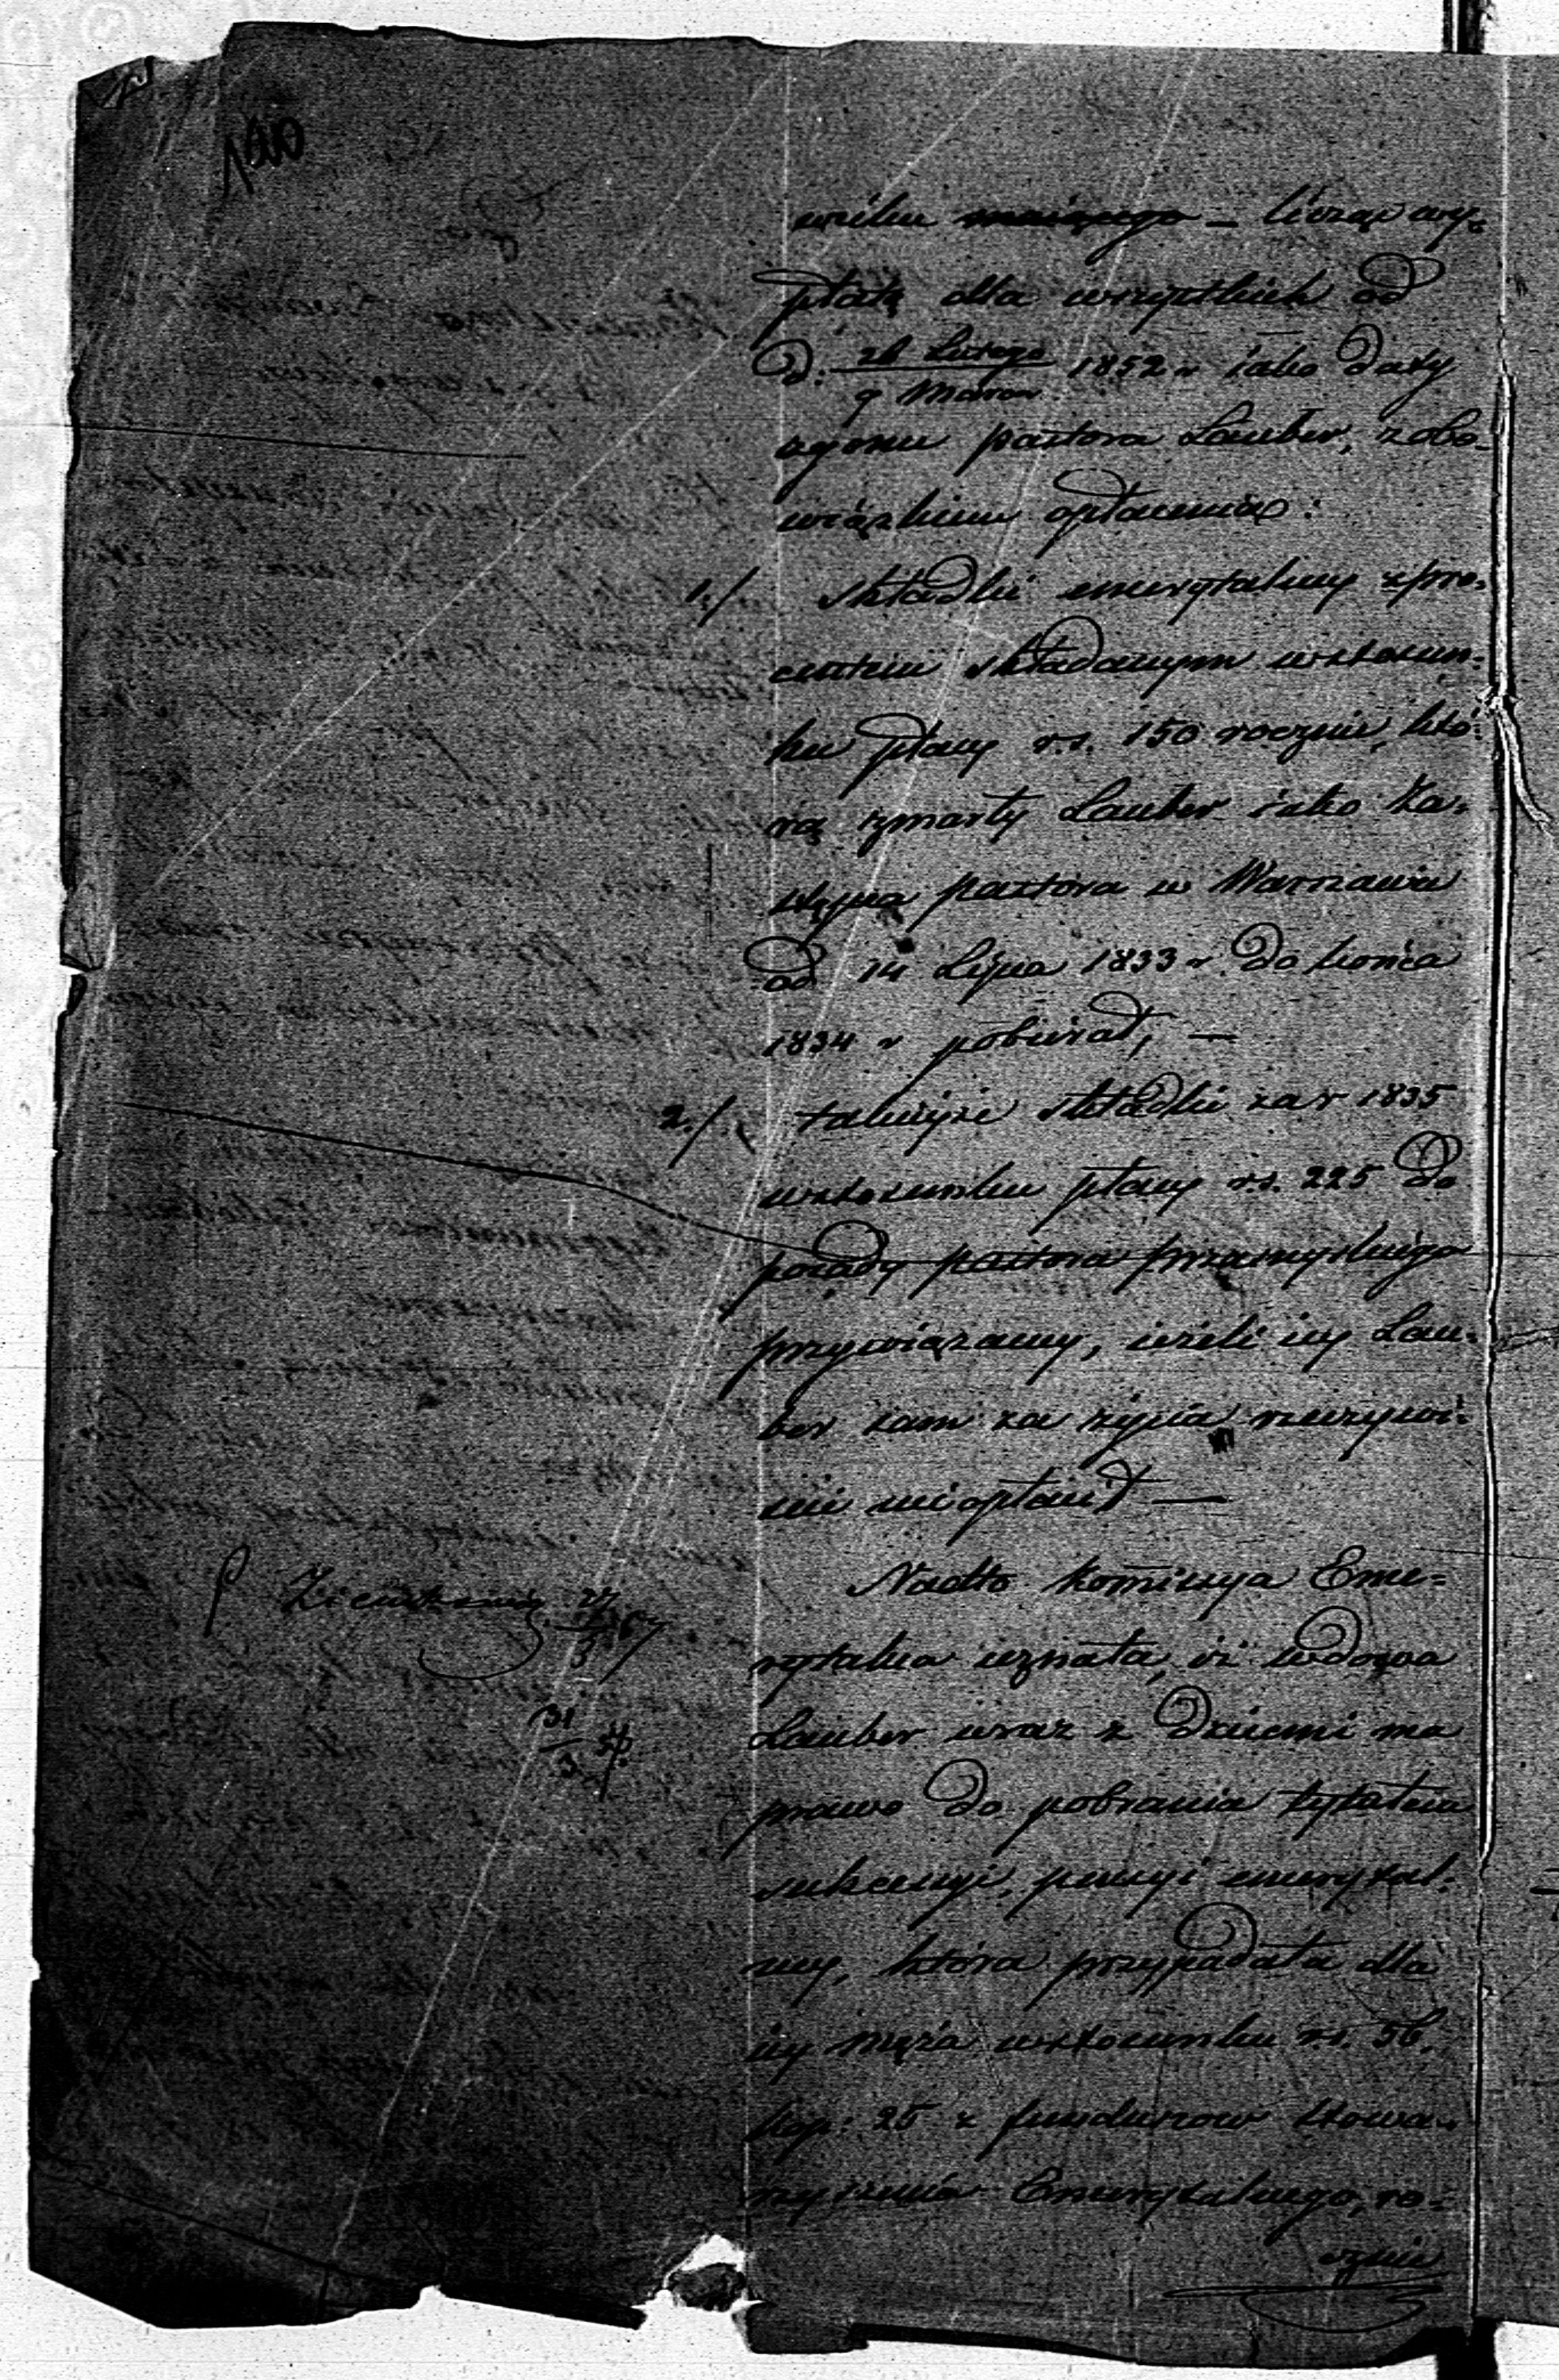 wieku maiącego — licząc wy-
płatę dla wszystkich od
d. 26 Lutego / 9 Marca 1852 r iako daty
zgonu pastora Lauber, z obo-
wiązkiem opłacenia:
1./ składki emerytalney z pro-
centem składanym w stosun-
ku płacy r.s. 150 rocznie, któ-
rą zmarły Lauber iako za-
stępca pastora w Warszawie
od 14 Lipca 1833 r. do końca
1834 r pobierał, —
2./. takieyże składki za r 1835
w stosunku płacy r.s. 225 do
posady pastora
przywiązaney, ieżeli iey Lau-
ber sam za życia rzeczywi-
ście nieopłacił —
Nadto Kommissya Eme-
rytalna uznała, iż wdowa
Lauber wraz z dziećmi ma
prawo do pobrania tytułem
sukcessyi, pensyi emerytal-
ney, która przypadała dla
iey męża w stosunku r.s. 56.
kop: 25 z funduszow Stowa-
rzyszenia Emerytalnego, ro-
cznie
31/3